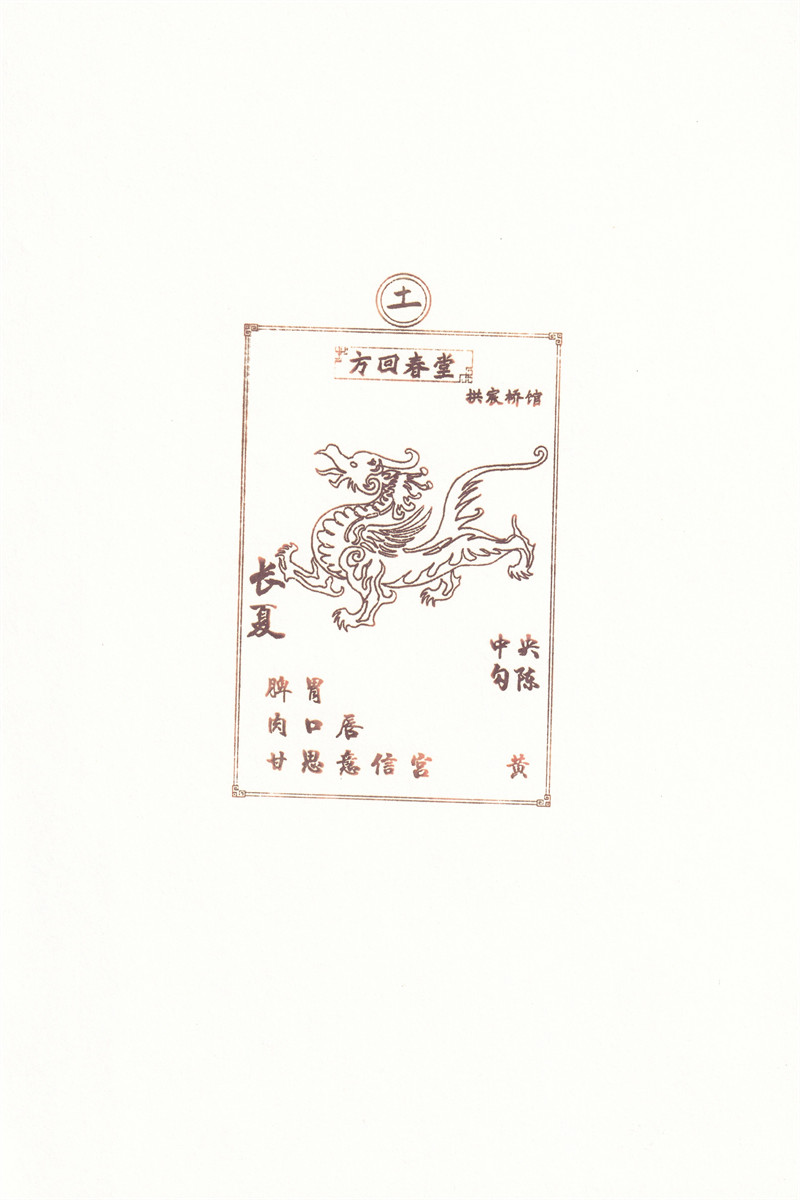 土
方回春堂
拱宸桥馆
长夏
中央
勾陈
脾胃
肉口唇
甘思意信宫 黄